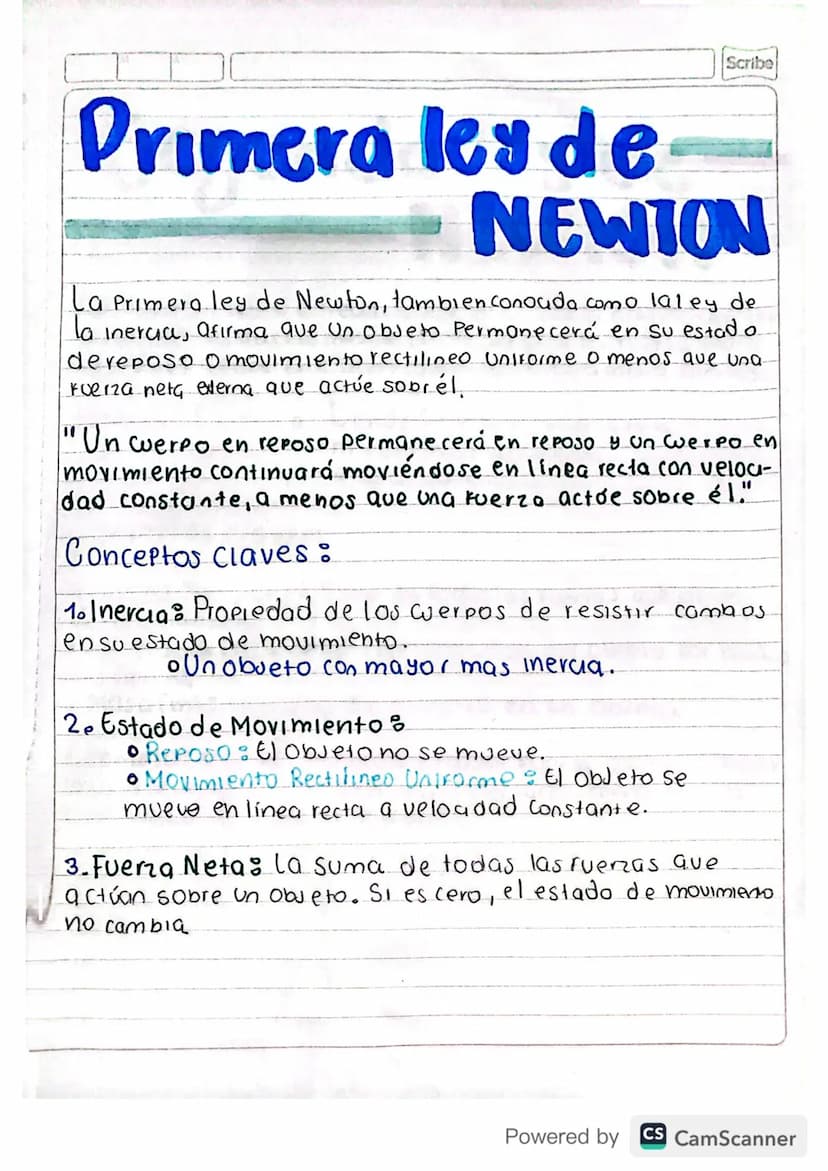 Scribe
Primera ley de
NEWTON
La Primera ley de Newton, tambien conocida como la ley de
la inercia, afirma que un objeto Permanecerá en su estado
de reposo o movimiento rectilineo uniforme o menos que una
fuerza neta externa que actúe sobr él.
"Un cuerpo en reposo permanecerá en reposo y un cuerpo en
movimiento continuará moviéndose en línea recta con veloci-
dad constante, a menos que una fuerza actúe sobre él."
Conceptos Claves:
1. Inercia: Propiedad de los cuerpos de resistir cambios
en su estado de movimiento.
Un objeto con mayor mas inercia.
2. Estado de Movimiento:
Reposo: El objeto no se mueve.
Movimiento Rectilineo Uniforme: El objeto se
mueve en línea recta a velocidad constante.
3. Fuerza Neta: La suma de todas las fuerzas que
actúan sobre un objeto. Si es cero, el estado de movimiento
no cambia
Powered by CS CamScanner